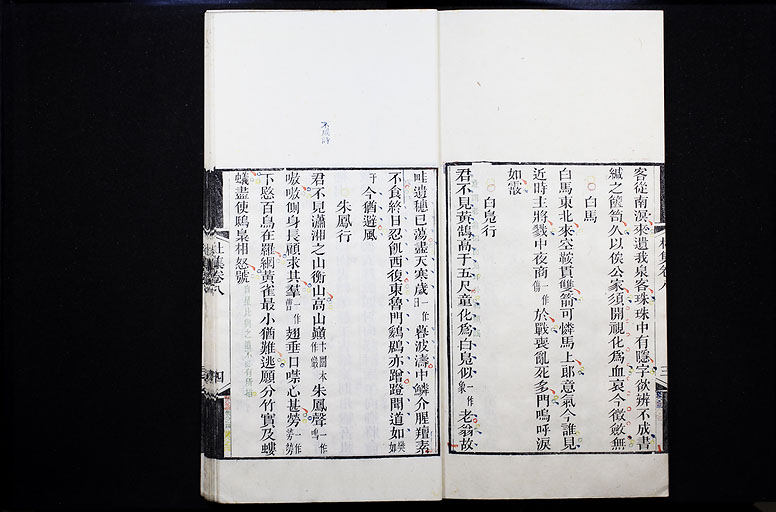 客從南溟來遺我泉客珠珠中有隱字欲辨不成書
緘之篋笥久以俟公家須開視化為血哀今徵斂無
白馬
白馬東北來空鞍貫雙箭可憐馬上郎意氣今誰見
近時主將戮中夜商一作傷於戰喪亂死多門嗚呼淚
如霰
白鳧行
君不見黃鵠高于五尺童化為白鳧似一作象老翁故
畦遺穗已蕩盡天寒歲一作日暮波濤中鱗介腥羶素
不食終日忍飢西復東魯門鷄鶋亦蹭蹬聞道如
于今猶避風
朱鳳行
君不見瀟湘之山衡山高山巔朱鳳聲一作鳴
嗷嗷側身長顧求其羣一作曹翅垂口噤心甚勞一作勞勞
下愍百鳥在羅網黃雀最小猶難逃願分竹實及螻
蟻盡使鴟梟相怒號
杜集卷八
三
杜集卷八
四
不成詩